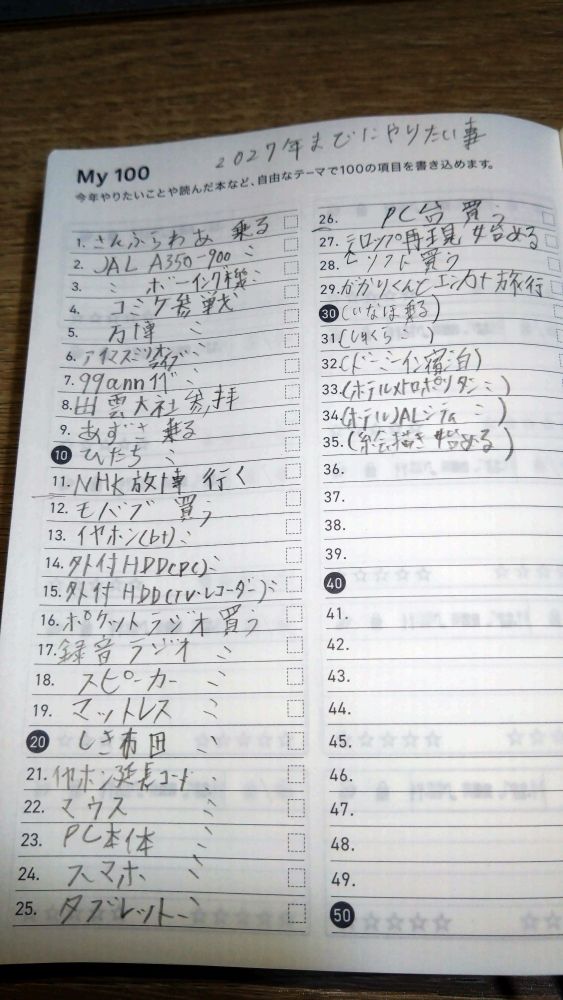 2027年までにやりたい事
My 100
今年やりたいことや読んだ本など、自由なテーマで100の項目を書き込めます。
1. さんふらわあ 乗る
2. JAL A350-900 〃
3. 〃 ボーイング機 〃
4. コミケ参戦
5. 万博 〃
6. アイマスミリオンライブ 〃
7. 99ann 〃
8. 出雲大社参拝
9. あずさ 乗る
10 ひたち 〃
11. NHK放博 行く
12. モバブ 買う
13. イヤホン(bt) 〃
14. 外付HDD(PC) 〃
15. 外付HDD(TV・レコーダー) 〃
16. ポケットラジオ買う
17. 録音ラジオ 〃
18. スピーカー 〃
19. マットレス 〃
20 しき布団 〃
21. イヤホン延長コード 〃
22. マウス 〃
23. PC本体 〃
24. スマホ 〃
25. タブレット 〃
26. PC台 買う
27. テロップ再現 始める
28. 〃 ソフト買う
29. がかりくんとエンカ+旅行
30 (いなほ乗る)
31. (しゅくら 〃 )
32. (ドーミーイン宿泊)
33. (ホテルメトロポリタン 〃 )
34. (ホテルJALシティ 〃 )
35. (絵描き始める)
36.
37.
38.
39.
40
41.
42.
43.
44.
45.
46.
47.
48.
49.
50